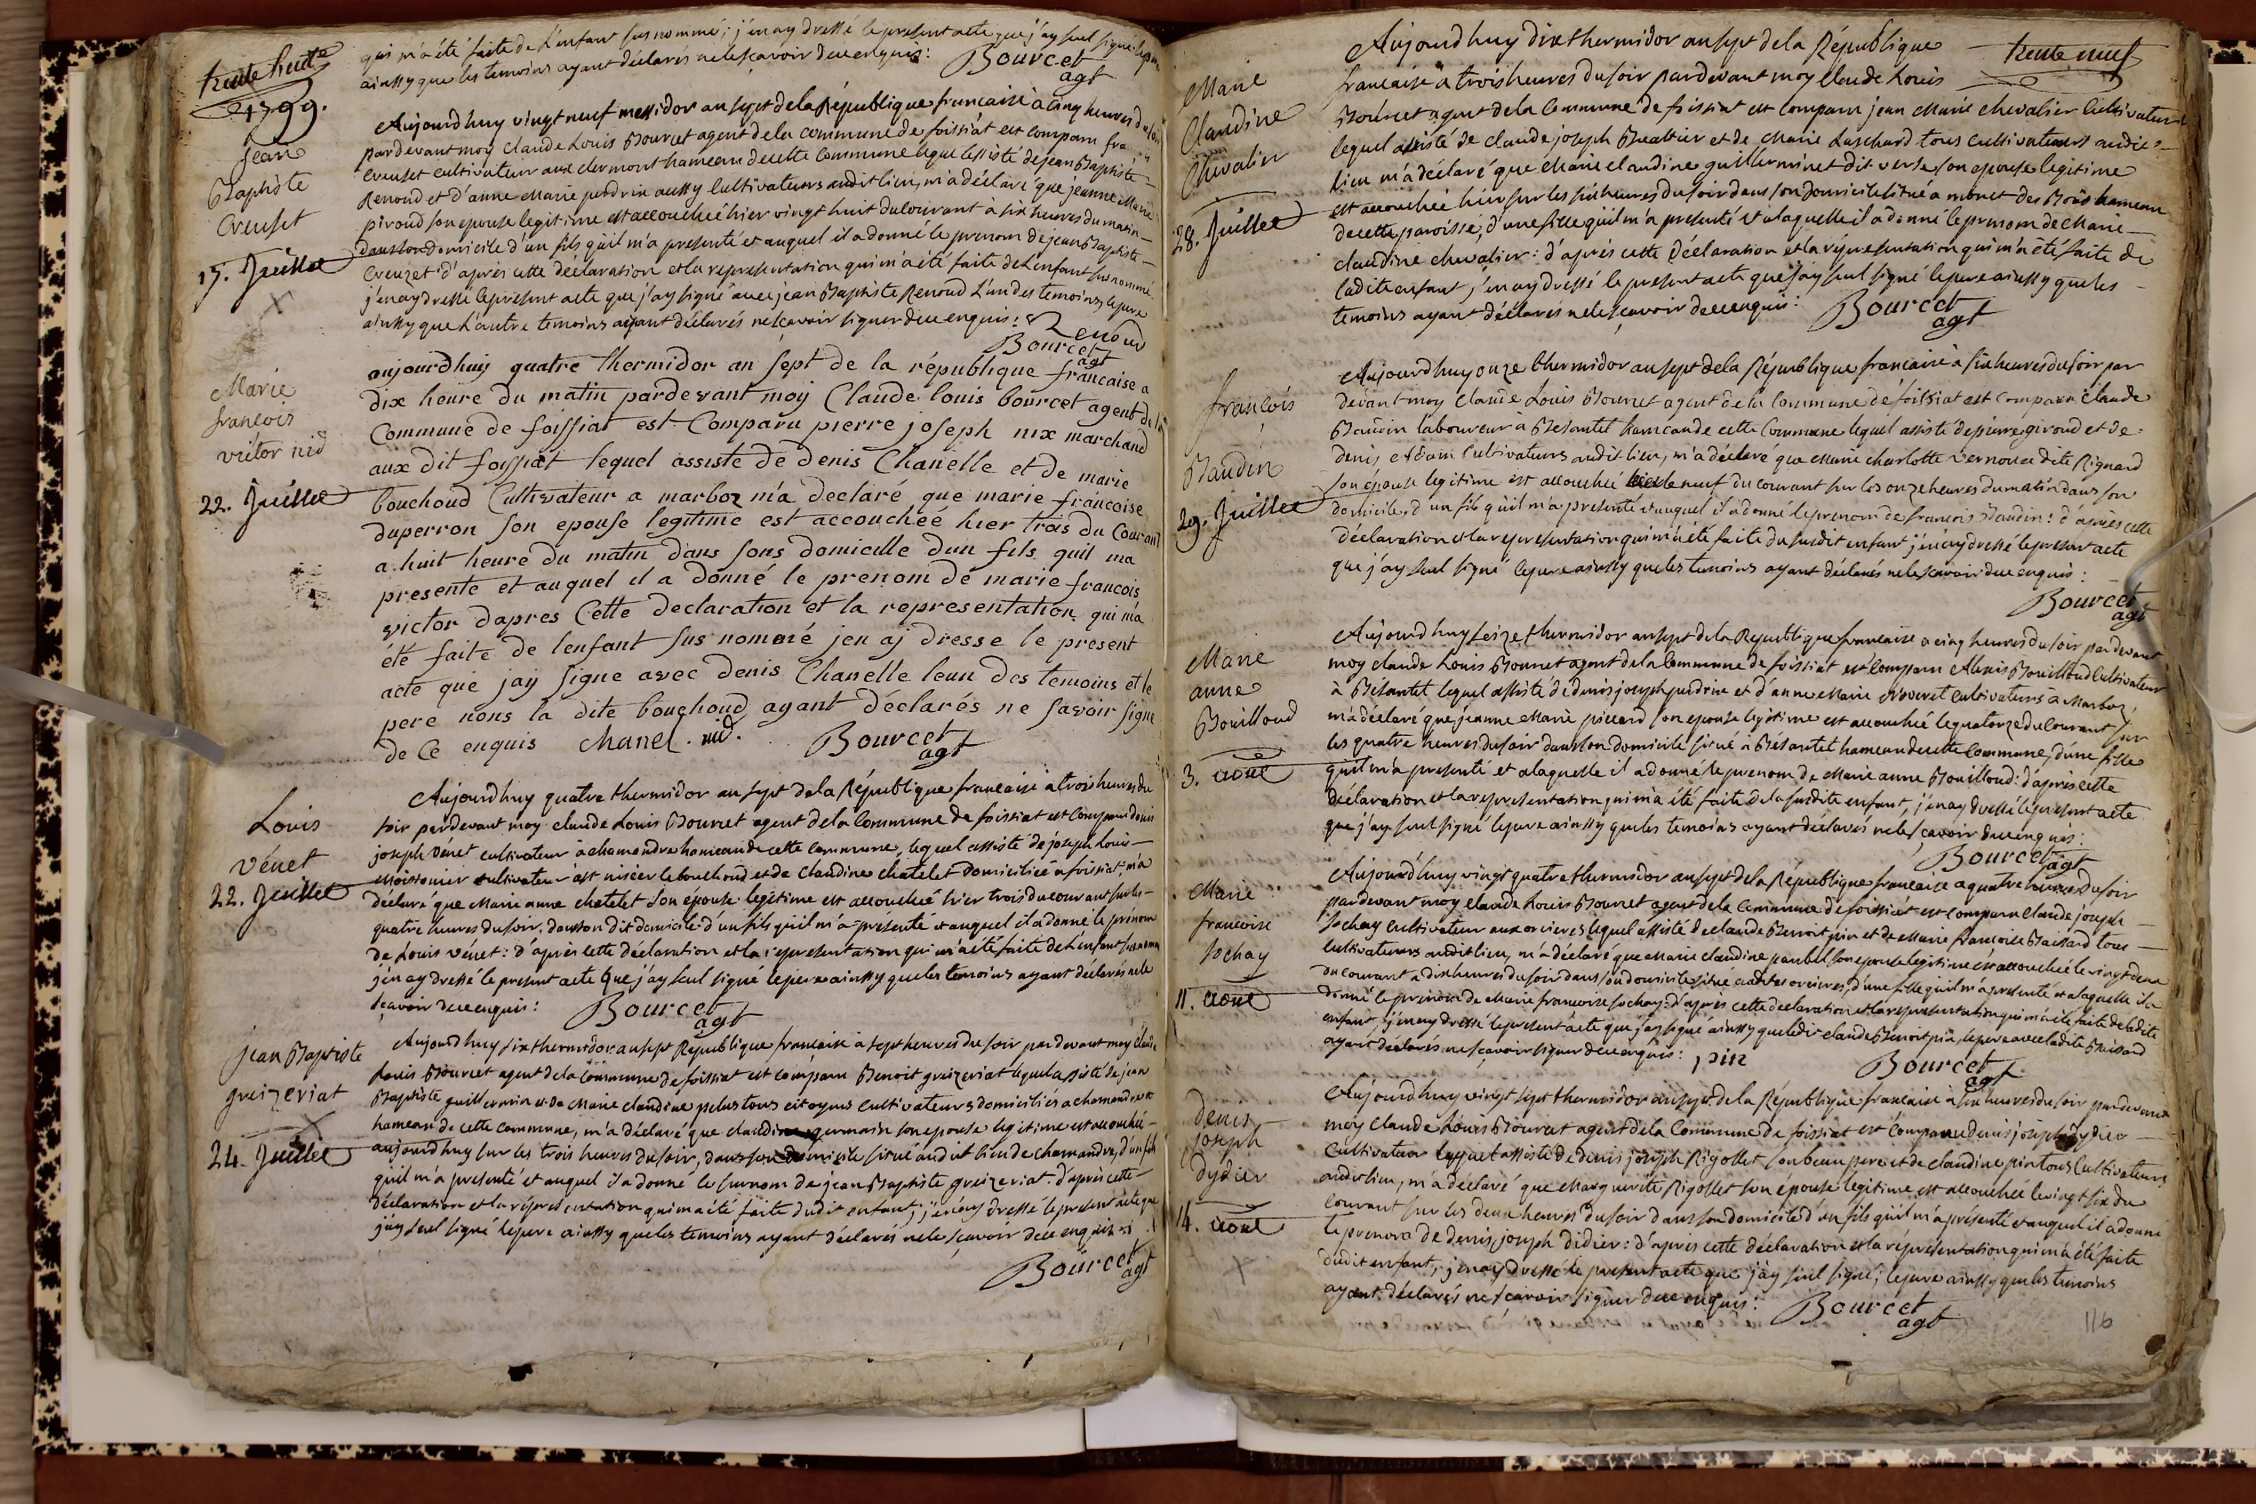 trente huit
1799.
qui m'a été faite de L'enfant sus nommé; j'en ay dressé le present acte que j'ay seul signé le pere
ainssy que les temoins ayant déclarés ne le scavoir de ce enquis: Bourcet
agt
Jean
Baptiste
Creuset
17. Juillet
Aujourdhuy vingt neuf messidor an sept de la République francaise à cinq heures du soir
pardevant moy Claude Louis Bourcet agent de la commune de foissiat est comparu fra
Creuset cultivateur aux clermont hameau de cette Commune lequel assisté de jean Baptiste
Renoud et d'anne Marie perdrix aussy Cultivateurs audit lieu, m'a déclaré que jeanne Marie
piroud son epouse legitime est accouchée hier vingt huit du courant à six heures du matin
dans son domicile d'un fils quil m'a presenté et auquel il a donné le prenom de jean Baptiste
Creuzet d'après cette déclaration et la representation qui m'a été faite de L'enfant sus nommé
j'en ay dressé le present acte que j'ay signé avec jean Baptiste Renoud L'un des temoins, le pere
ainssy que L'autre temoins ayant déclarés ne scavoir signer de ce enquis: Renoud
Bourcet
agt
Marie
francois
victor nid
22. Juillet
aujourdhuy quatre thermidor an sept de la république francaise a
dix heure du matin pardevant moy Claude louis bourcet agent de la
Commune de foissiat est Comparu pierre joseph nix marchand
aux dit foissiat lequel assiste de denis Chanelle et de marie
bouchoud Cultivateur a marboz m'a declaré que marie francoise
duperron son epouse legitime est accouchéé hier trois du Courant
a huit heure du matin dans sons domicille dun fils quil ma
presente et auquel il a donné le prenom de marie francois
victor dapres Cette declaration et la representation qui m'a
été faite de lenfant sus nommé jen aj dresse le present
acte que jay signe avec denis Chanelle leun des temoins et le
pere nons la dite bouchoud ayant déclarés ne savoir signe
de Ce enquis Chanel. nid. Bourcet
agt
Louis
vénet
22. Juillet
Aujourdhuy quatre thermidor an sept de la République francaise à trois heures du
soir pardevant moy claude Louis Bourcet agent de la Commune de foissiat est Comparu denis
joseph Vénet cultivateur à chamandre hameau de cette commune, lequel assisté de joseph Louis
Moissonier cultivateur à st nisier le bouchoud et de Claudine chatelet domiciliée à foissiat, m'a
déclaré que Marie anne chatelet son épouse legitime est accouchée hier trois du courant sur les
quatre heures du soir, dans son dit domicile d'un fils qu'il m'a présenté et auquel il a donné le prenom
de Louis vénet: d'après cette déclaration et la representation qui m'a été faite de L'enfant sus nommé
j'en ay dressé le present acte que j'ay seul signé le pere ainssy que les temoins ayant déclarés ne le
scavoir de ce enquis: Bourcet
agt
jean Baptiste
greizeriat
24. Juillet
Aujourdhuy six thermidor an sept République francaise à sept heures du soir pardevant moy claude
Louis Bourcet agent de la Commune de foissiat est comparu Benoit greizeriat lequel assisté de jean
Baptiste guillermin et de Marie claudine pelus tous citoyens cultivateurs domiciliés a chamandre
hameau de cette commune, m'a déclaré que claudine germain son epouse legitime est accouchée
aujourdhuy sur les trois heures du soir, dans son domicile situé audit lieu de chamandre, d'un fils
quil m'a presenté et auquel il a donné le surnom de jean Baptiste greizeriat. d'après cette
déclaration et la répresentation qui m'a été faite dudit enfant, j'en ay dressé le present acte que
j'ay seul signé le pere ainssy que les temoins ayant déclarés ne le scavoir de ce enquis:
Bourcet
agt
trente neuf
Marie
Claudine
Chevalier
28. Juillet
Aujourdhuy dix thermidor an sept de la République
francaise à trois heures du soir pardevant moy Claude Louis
Bourcet agent de la Commune de foissiat est comparu jean Marie chevalier Cultivateur
lequel assisté de claude joseph Buattier et de Marie Luschard tous cultivateurs audit
lieu m'a déclaré que Marie claudine guillerminet dit verse son epouse legitime
est accouchée hier sur les six heures du soir dans son domicile situé a monet des Bois hameau
de cette paroisse, d'une fille quil m'a presenté et a laquelle il a donné le prenom de Marie
claudine chevalier: d'après cette déclaration et la répresentation qui m'a été faite de
ladite enfant, j'en ay dressé le present acte que j'ay seul signé le pere ainssy que les
temoins ayant déclarés ne le scavoir de ce enquis: Bourcet
agt
francois
Baudin
29. Juillet
Aujourdhuy onze thermidor an sept de la République francaise à six heures du soir par
devant moy Claude Louis Bourcet agent de la Commune de foissiat est comparu Claude
Baudin laboureur à Bésantet hameau de cette Commune lequel assisté de pierre giroud et de
denis adam Cultivateurs audit lieu, m'a déclaré que Marie charlotte Vernoux dite Rignard
son épouse legitime est accouchée le neuf du courant sur les onze heures du matin dans son
domicile, d'un fils qu'il m'a presenté et auquel il a donné le prenom de francois Baudin: d'après cette
déclaration et la representation qui m'a été faite du susdit enfant j'en ay dressé le present acte
que j'ay seul signé le pere ainssy que les temoins ayant déclarés ne le scavoir de ce enquis:
Bourcet
agt
Marie
anne
Bouilloud
3. aout
Aujourdhuy seize thermidor an sept de la République francaise a cinq heures du soir pardevant
moy claude Louis Bourcet agent de la Commune de foissiat est comparu Alexis Bouilloud Cultivateur
à Bésantet lequel assisté de denis joseph perdrix et d'anne Marie Convert cultivateurs à Marboz,
m'a déclaré que jeanne Marie picard son epouse legitime est accouchée le quatorze du Courant sur
les quatre heures du soir dans son domicile situé à Bésantet hameau de cette Commune, d'une fille
quil m'a presenté et a laquelle il a donné le prenom de Marie anne Bouilloud: d'après cette
déclaration et la representation qui m'a été faite de la susdite enfant, j'en ay dressé le present acte
que j'ay seul signé le pere ainssy que les temoins ayant déclarés ne le scavoir de ce enquis:
Bourcet agt
Marie
francoise
Sochay
11. aout
Aujourd'huy vingt quatre thermidor an sept de la République francaise a quatre heures du soir
pardevant moy claude Louis Bourcet agent de la Commune de foissiat est comparu Claude joseph
Sochay Cultivateur aux orcieres lequel assisté de claude Benoit pin et de Marie francoise Buissard tous
cultivateurs audit lieu, m'a déclaré que Marie claudine son epouse legitime est accouchée le vingt deux
du courant a dix heures du soir dans son domicile situé auxdites orcieres, d'une fille quil m'a presenté et a laquelle il a
donné le prenom de Marie francoise Sochay: d'après cette declaration et la representation qui m'a été faite de ladite
enfant, j'en ay dressé le present acte que j'ay signé ainssy que ledit claude Benoit pin, le pere avec ladite Buissard
ayant declarés ne scavoir signer de ce enquis: pin Bourcet
agt
denis
joseph
dydier
14. aout
Aujourdhuy vingt sept thermidor an sept de la République francaise à six heures du soir pardevant
moy Claude Louis Bourcet agent de la Commune de foissiat est comparu denis joseph dydier
Cultivateur lequel assisté de denis joseph Rigollet son beau pere et de claudine pin tous Cultivateurs
audit lieu, m'a déclaré que Marguerite Rigollet son épouse legitime est accouchée le vingt six du
courant sur les deux heures du soir dans son domicile d'un fils qu'il m'a présenté et auquel il a donné
le prenom de denis joseph didier: d'après cette déclaration et la réprésentation qui m'a été faite
dudit enfant, j'en ay dressé le present acte que j'ay seul signé, le pere ainssy que les temoins
ayant déclarés ne scavoir signer de ce enquis: Bourcet
agt
116